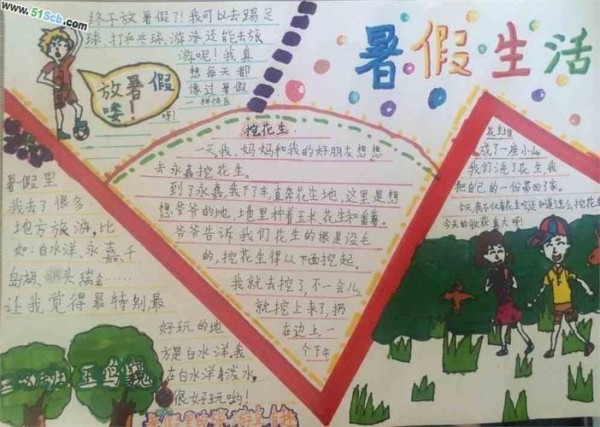 www.51Scb.com
终于放暑假了!我可以去踢足
球、打乒乓球、游泳还能去旅
游呢!我真
想每天都
像过暑假
一样快乐
呀!
放暑假
喽!
暑假生活
挖花生
一天我、妈妈和我的好朋友想想
去永嘉挖花生。
到了永嘉我下了车直奔花生地,这里是想
想爷爷的地,地里种着玉米花生和番薯。
爷爷告诉我们花生的根是没毛
的,挖花生得从下面挖起。
我就去挖了,不一会儿,
就挖上来了,扔
在边上,一
个下午
花生堆
成了一座小山
我们洗了花生我
和自己的一份带回了家。
今天我不仅有花生吃还知道怎么挖花生
今天的收获真大啊!
暑假里
我去了很多
地方旅游,比
如:白水洋、永嘉、千
岛湖、头、瑞金……
让我觉得最特别最
好玩的地
方是白水洋,我
在白水洋身泼水,
很好玩哟!
班